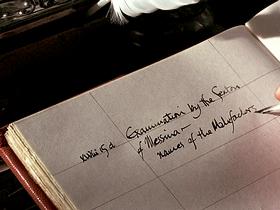 Examination by the Sexton
of Messina –
names of the Malefactors